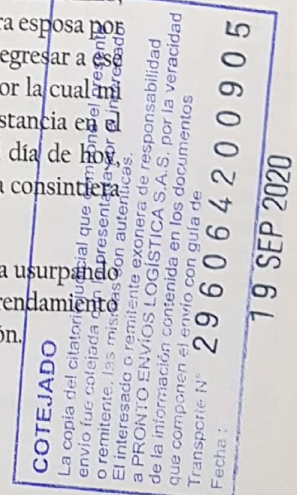 ra esposa por
egresar a ese
or la cual mi
stancia en el
día de hoy,
a consintiera
a usurpando
rendamiento
ón.
COTEJADO
La copia del citatorio judicial que el presente
envío fue cotejada
o remitente. las mismas son autenticas.
El interesado o remitente exonera de responsabilidad
a PRONTO ENVÍOS LOGÍSTICA S.A.S. por la veracidad
de la información contenida en los documentos
que componen el envío con guía de
Transporte N° 296064200905
Fecha: 19 SEP 2020